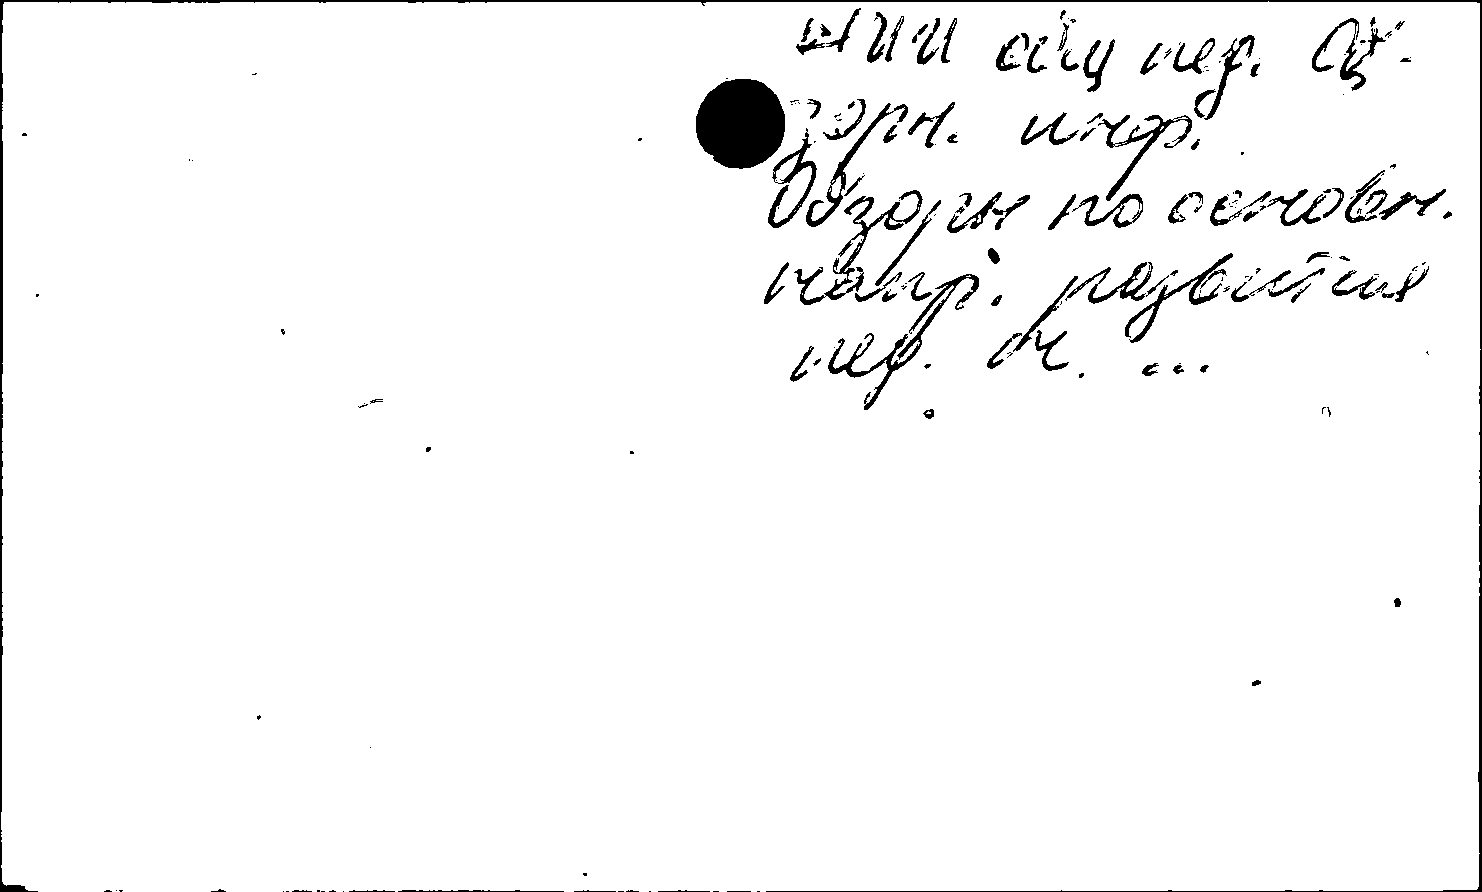 НИИ общ пед. Об-
зорн. инф.
Обзоры по основн.
напр. развития
пед. н. ...